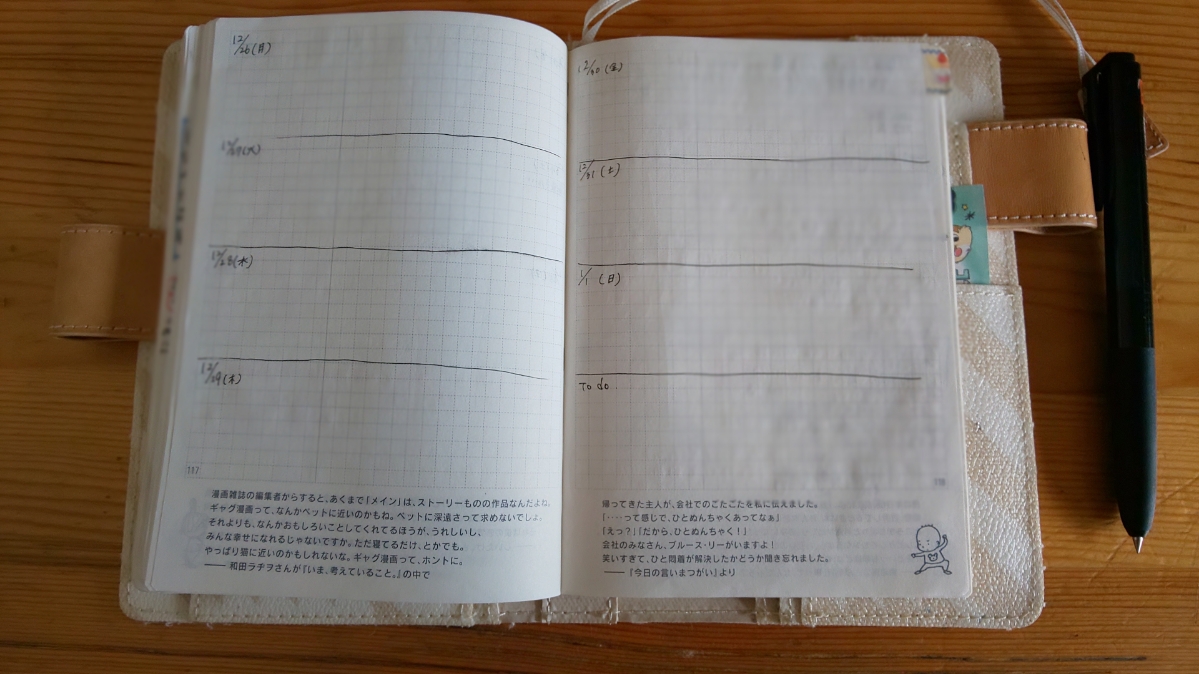 12/26(月)
12/27(火)
12/28(水)
12/29(木)
117
漫画雑誌の編集者からすると、あくまで「メイン」は、ストーリーものの作品なんだよね。
ギャグ漫画って、なんかペットに近いのかもね。ペットに深遠さって求めないでしょ。
それよりも、なんかおもしろいことしてくれてるほうが、うれしいし、
みんな幸せになれるじゃないですか。ただ寝てるだけ、とかでも。
やっぱり猫に近いのかもしれないな。ギャグ漫画って、ホントに。
——和田ラヂヲさんが『いま、考えていること。』の中で
12/30(金)
12/31(土)
1/1(日)
To do..
帰ってきた主人が、会社でのごたごたを私に伝えました。
「‥‥って感じで、ひとめんちゃくあってなぁ」
「えっ?」「だから、ひとめんちゃく!」
会社のみなさん、ブルース・リーがいますよ!
笑いすぎて、ひと悶着が解決したかどうか聞き忘れました。
——『今日の言いまつがい』より